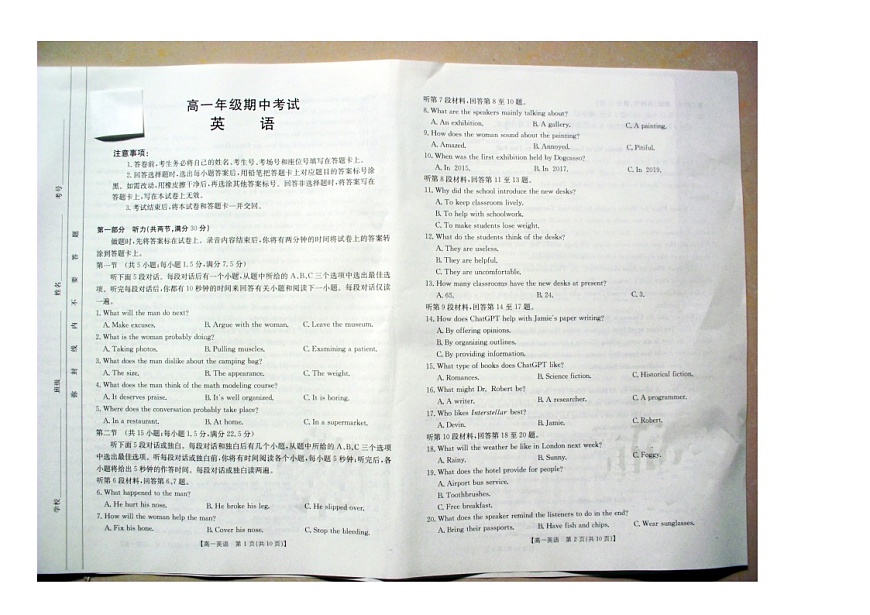 高一年级期中考试
英 语
注意事项:
1. 答卷前,考生务必将自己的姓名、考生号、考场号和座位号填写在答题卡上。
2. 回答选择题时,选出每小题答案后,用铅笔把答题卡上对应题目的答案标号涂
黑。如需改动,用橡皮擦干净后,再选涂其他答案标号。回答非选择题时,将答案写在
答题卡上。写在本试卷上无效。
3. 考试结束后,将本试卷和答题卡一并交回。
第一部分 听力(共两节,满分 30 分)
做题时,先将答案标在试卷上。录音内容结束后,你将有两分钟的时间将试卷上的答案转
涂到答题卡上。
第一节 (共 5 小题;每小题 1.5 分,满分 7.5 分)
听下面 5 段对话。每段对话后有一个小题,从题中所给的 A、B、C 三个选项中选出最佳选
项。听完每段对话后,你都有 10 秒钟的时间来回答有关小题和阅读下一小题。每段对话仅读
一遍。
1. What will the man do next?
A. Make excuses. B. Argue with the woman. C. Leave the museum.
2. What is the woman probably doing?
A. Taking photos. B. Pulling muscles. C. Examining a patient.
3. What does the man dislike about the camping bag?
A. The size. B. The appearance. C. The weight.
4. What does the man think of the math modeling course?
A. It deserves praise. B. It's well organized. C. It is boring.
5. Where does the conversation probably take place?
A. In a restaurant. B. At home. C. In a supermarket.
第二节 (共 15 小题;每小题 1.5 分,满分 22.5 分)
听下面 5 段对话或独白。每段对话和独白后有几个小题,从题中所给的 A、B、C 三个选项
中选出最佳选项。听每段对话或独白前,你将有时间阅读各个小题,每小题 5 秒钟;听完后,各
小题将给出 5 秒钟的作答时间。每段对话或独白读两遍。
听第 6 段材料,回答第 6、7 题。
6. What happened to the man?
A. He hurt his nose. B. He broke his leg. C. He slipped over.
7. How will the woman help the man?
A. Fix his bone. B. Cover his nose. C. Stop the bleeding.
【高一英语 第 1 页(共 10 页)】
听第 7 段材料,回答第 8 至 10 题。
8. What are the speakers mainly talking about?
A. An exhibition. B. A gallery. C. A painting.
9. How does the woman sound about the painting?
A. Amazed. B. Annoyed. C. Pitiful.
10. When was the first exhibition held by Dogcasso?
A. In 2015. B. In 2017. C. In 2019.
听第 8 段材料,回答第 11 至 13 题。
11. Why did the school introduce the new desks?
A. To keep classroom lively.
B. To help with schoolwork.
C. To make students lose weight.
12. What do the students think of the desks?
A. They are useless.
B. They are helpful.
C. They are uncomfortable.
13. How many classrooms have the new desks at present?
A. 65. B. 24. C. 3.
听第 9 段材料,回答第 14 至 17 题。
14. How does ChatGPT help with Jamie's paper writing?
A. By offering opinions.
B. By organizing outlines.
C. By providing information.
15. What type of books does ChatGPT like?
A. Romances. B. Science fiction. C. Historical fiction.
16. What might Dr. Robert be?
A. A writer. B. A researcher. C. A programmer.
17. Who likes Interstellar best?
A. Devin. B. Jamie. C. Robert.
听第 10 段材料,回答第 18 至 20 题。
18. What will the weather be like in London next week?
A. Rainy. B. Sunny. C. Foggy.
19. What does the hotel provide for people?
A. Airport bus service.
B. Toothbrushes.
C. Free breakfast.
20. What does the speaker remind the listeners to do in the end?
A. Bring their passports. B. Have fish and chips. C. Wear sunglasses.
【高一英语 第 2 页(共 10 页)】
学校
班级
姓名
考号
弥 封 线 内 不 要 答 题